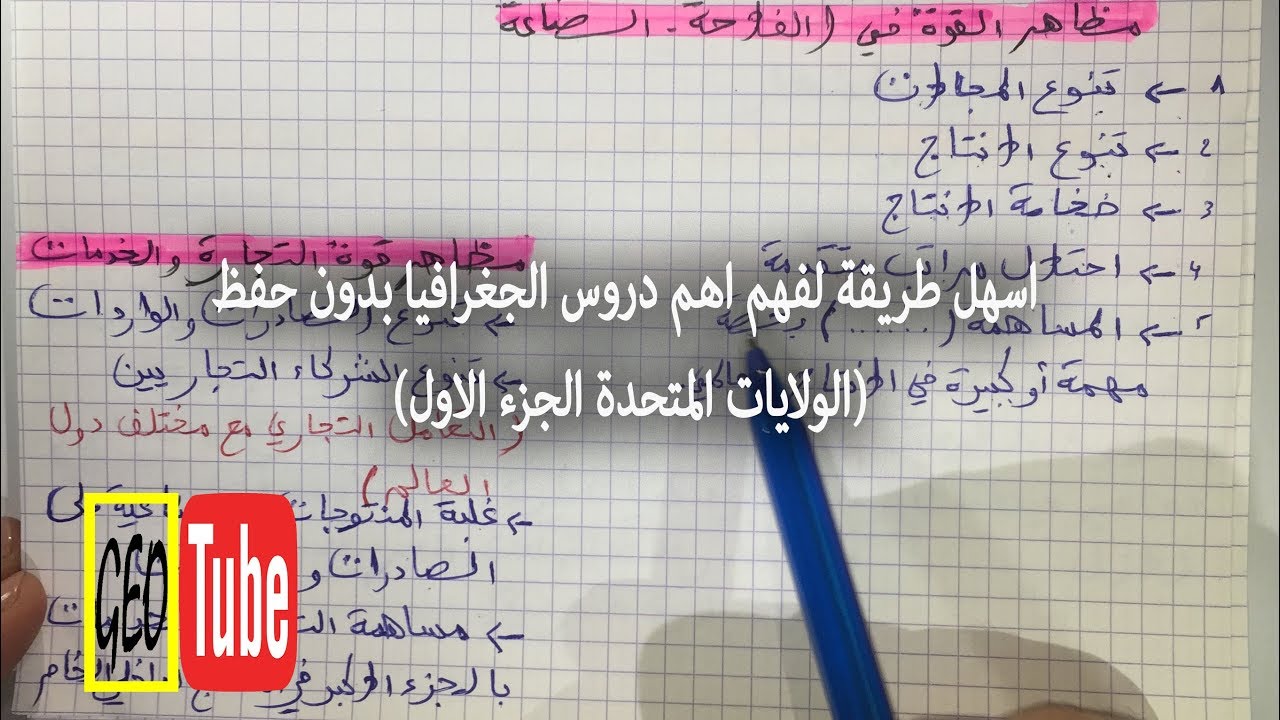 مظاهر القوة في (الفلاحة - الصناعة
1 ← تنوع المجالات
2 ← تنوع الانتاج
3 ← ضخامة الانتاج
4 ← احتلال مراتب متقدمة
5 ← المساهمة (......)
مهمة أو كبيرة في
مظاهر قوة التجارة والخدمات
← تنوع الصادرات والواردات
← تنوع الشركاء التجاريين
( التعامل التجاري مع مختلف دول
العالم )
← غلبة المنتوجات
الصادرات و
← مساهمة
بالجزء الاكبر في الخام
اسهل طريقة لفهم اهم دروس الجغرافيا بدون حفظ
(الولايات المتحدة الجزء الاول)
GEO Tube